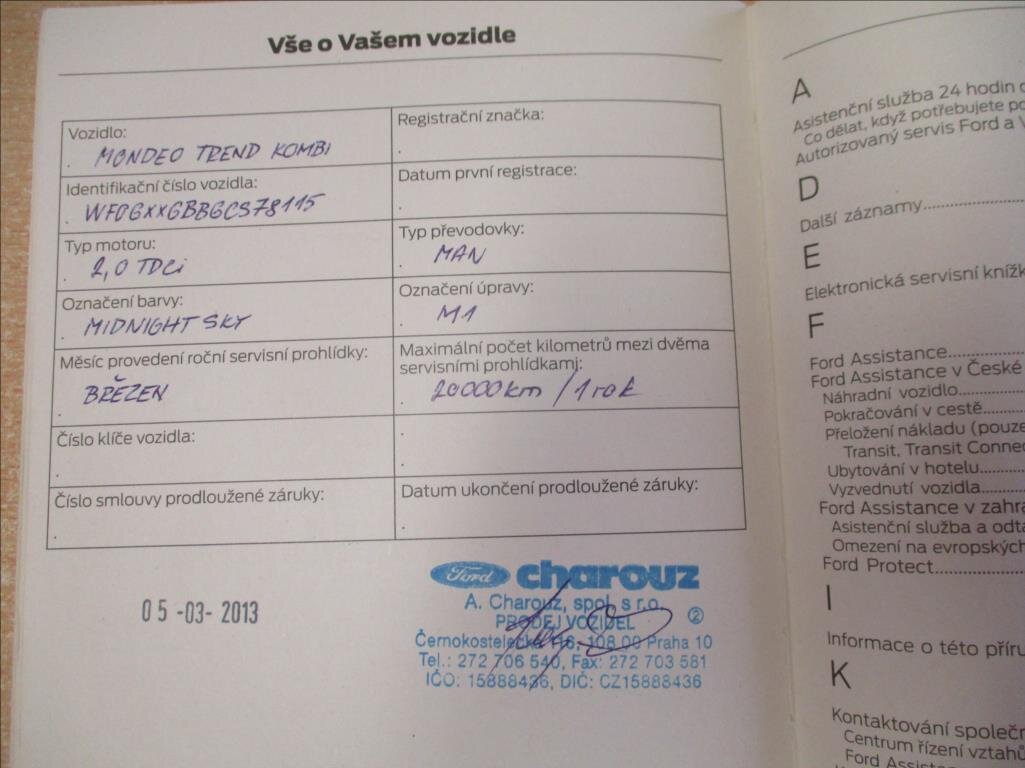 Vše o Vašem vozidle
Vozidlo:
MONDEO TREND KOMBI
Registrační značka:
Identifikační číslo vozidla:
WF0GXXGBBGCS78115
Datum první registrace:
Typ motoru:
2,0 TDCi
Typ převodovky:
MAN
Označení barvy:
MIDNIGHT SKY
Označení úpravy:
M1
Měsíc provedení roční servisní prohlídky:
BŘEZEN
Maximální počet kilometrů mezi dvěma
servisními prohlídkami:
20000km / 1 rok
Číslo klíče vozidla:
Číslo smlouvy prodloužené záruky:
Datum ukončení prodloužené záruky:
05 -03- 2013
Ford charouz
A. Charouz, spol. s r.o.
PRODEJ VOZIDEL 2
Černokostelecká 116, 108 00 Praha 10
Tel.: 272 706 540, Fax: 272 703 581
IČO: 15888436, DIČ: CZ15888436
A
Asistenční služba 24 hodin
Co dělat, když potřebujete
Autorizovaný servis Ford a
D
Další záznamy
E
Elektronická servisní
F
Ford Assistance
Ford Assistance v České
Náhradní vozidlo
Pokračování v cestě
Přeložení nákladu (pouze
Transit, Transit
Ubytování v hotelu
Vyzvednutí vozidla
Ford Assistance v
Asistenční služba a
Omezení na evropských
Ford Protect
I
Informace o této
K
Kontaktování
Centrum řízení vztahů
Ford